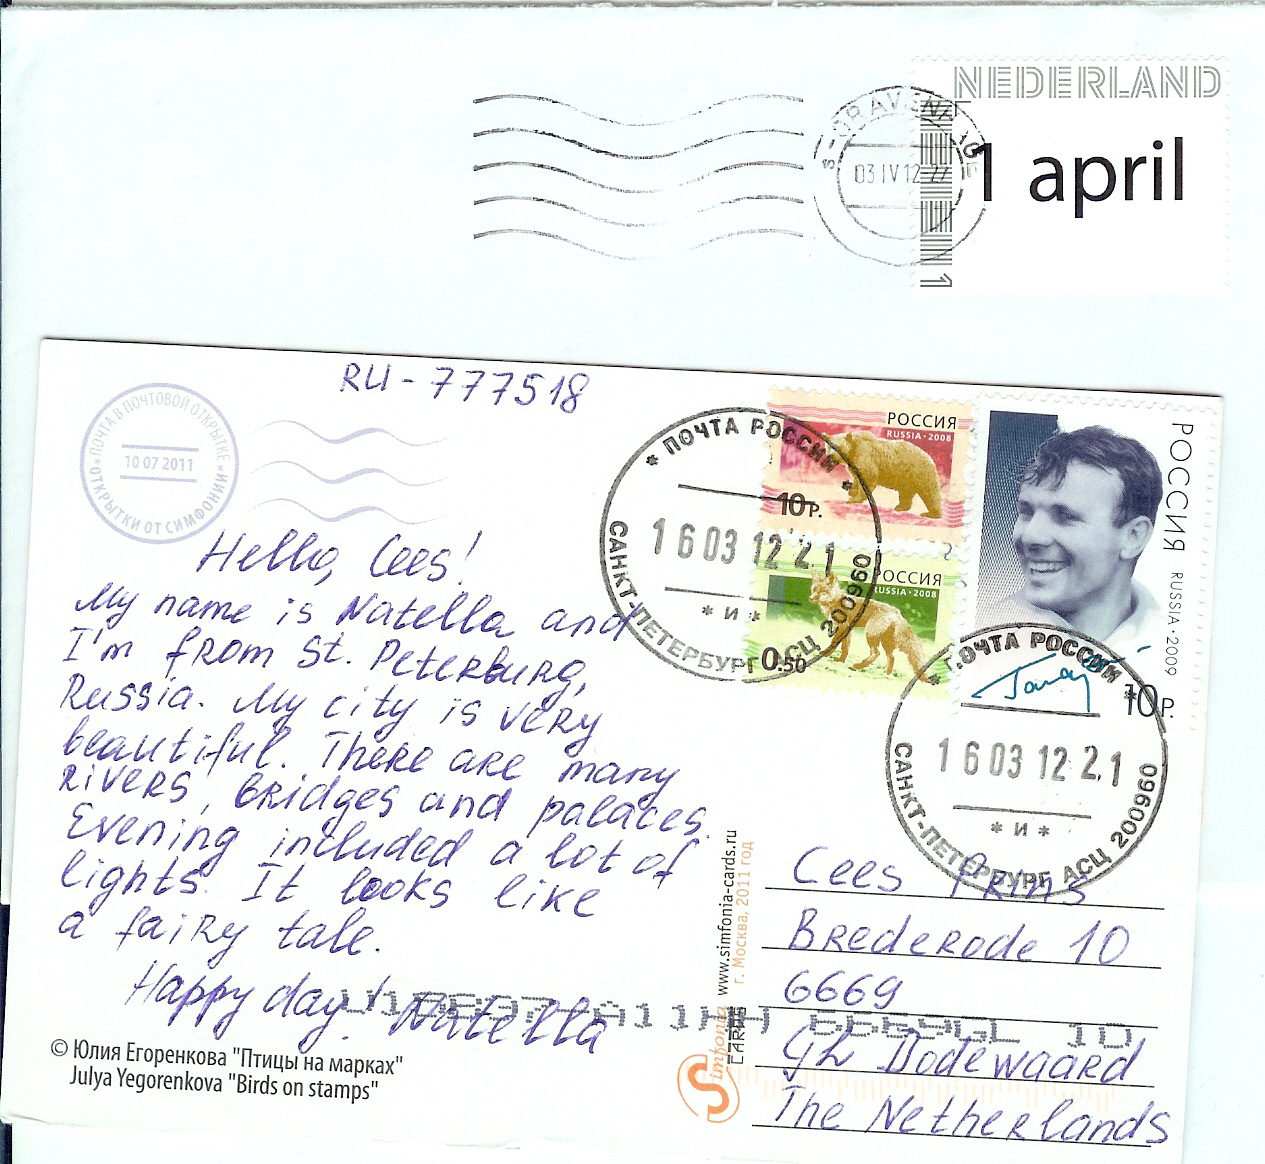 NEDERLAND
1 april
'S-GRAVENHAGE
03 IV 12
1
RU-777518
ПОЧТА В ПОЧТОВОЙ ОТКРЫТКЕ
10 07 2011
ОТКРЫТКИ ОТ СИМФОНИИ
Hello, Cees!
My name is Natella and
I'm from St. Peterburg,
Russia. My city is very
beautiful. There are many
rivers, bridges and palaces.
Evening included a lot of
lights. It looks like
a fairy tale.
Happy day! Natella
© Юлия Егоренкова "Птицы на марках"
Julya Yegorenkova "Birds on stamps"
РОССИЯ
RUSSIA · 2008
10 Р.
РОССИЯ
RUSSIA · 2008
0.50
РОССИЯ RUSSIA · 2009
10 Р.
* ПОЧТА РОССИИ *
16 03 12 2.1
* И *
САНКТ-ПЕТЕРБУРГ АСЦ 200960
ПОЧТА РОССИИ *
16 03 12 2.1
* И *
САНКТ-ПЕТЕРБУРГ АСЦ 200960
www.simfonia-cards.ru
г. Москва, 2011 год
Simfonia
CARDS
Cees Prins
Brederode 10
6669
GL Dodewaard
The Netherlands
6669GL 10